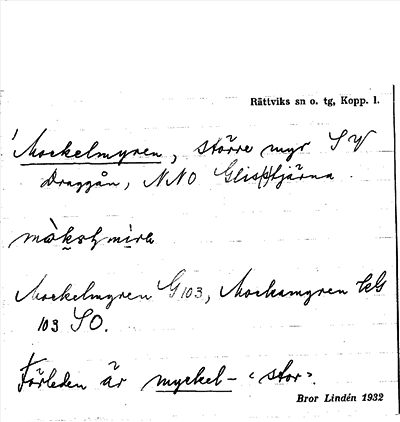 Rättviks sn o. tg, Kopp. l.
Mockelmyren, större myr SV
Draggån, NNO Glistjärna.
Mockelmyren G 103, Mockamyren kG
103 SO.
Förleden är myckel- 'stor'.
Bror Lindén 1932